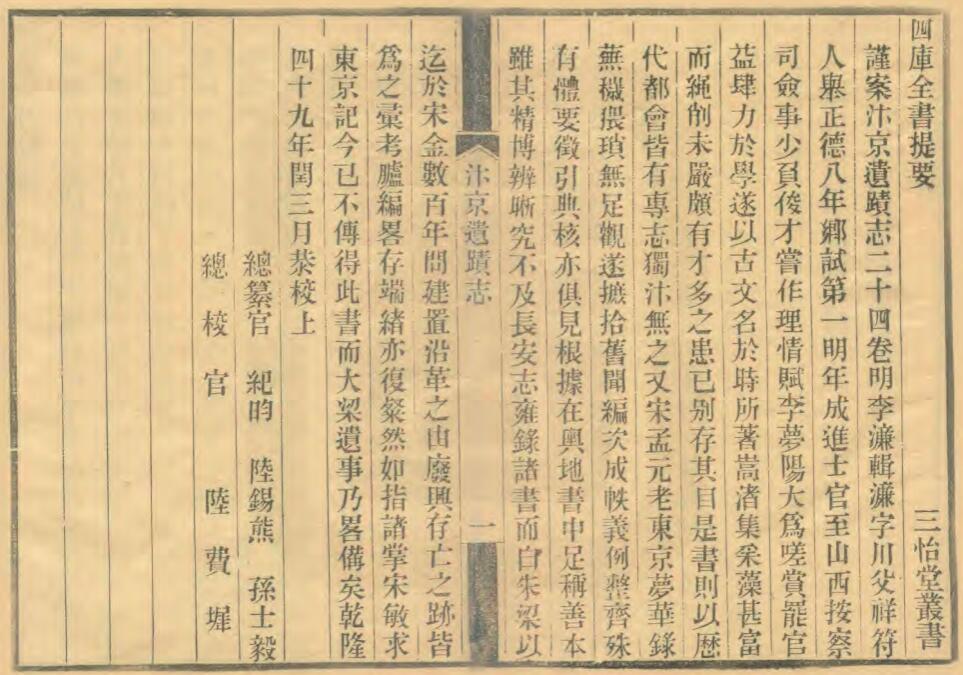 四庫全書提要
三怡堂叢書
謹案汴京遺蹟志二十四卷明李濂輯濂字川父祥符
人舉正德八年鄉試第一明年成進士官至山西按察
司僉事少負俊才嘗作理情賦李夢陽大爲嗟賞罷官
益肆力於學遂以古文名於時所著嵩渚集采藻甚富
而繩削未嚴頗有才多之患已别存其目是書則以歷
代都會皆有專志獨汴無之又宋孟元老東京夢華錄
蕪穢猥瑣無足觀遂摭拾舊聞編次成帙義例整齊殊
有體要徵引典核亦俱見根據在輿地書中足稱善本
雖其精博辨晰究不及長安志雍錄諸書而自朱梁以
汴京遺蹟志
一
迄於宋金數百年間建置沿革之由廢興存亡之跡皆
爲之彙考臚編畧存端緒亦復粲然如指諸掌宋敏求
東京記今已不傳得此書而大梁遺事乃畧備矣乾隆
四十九年閏三月恭校上
總纂官 紀昀 陸錫熊 孫士毅
總校官 陸費墀